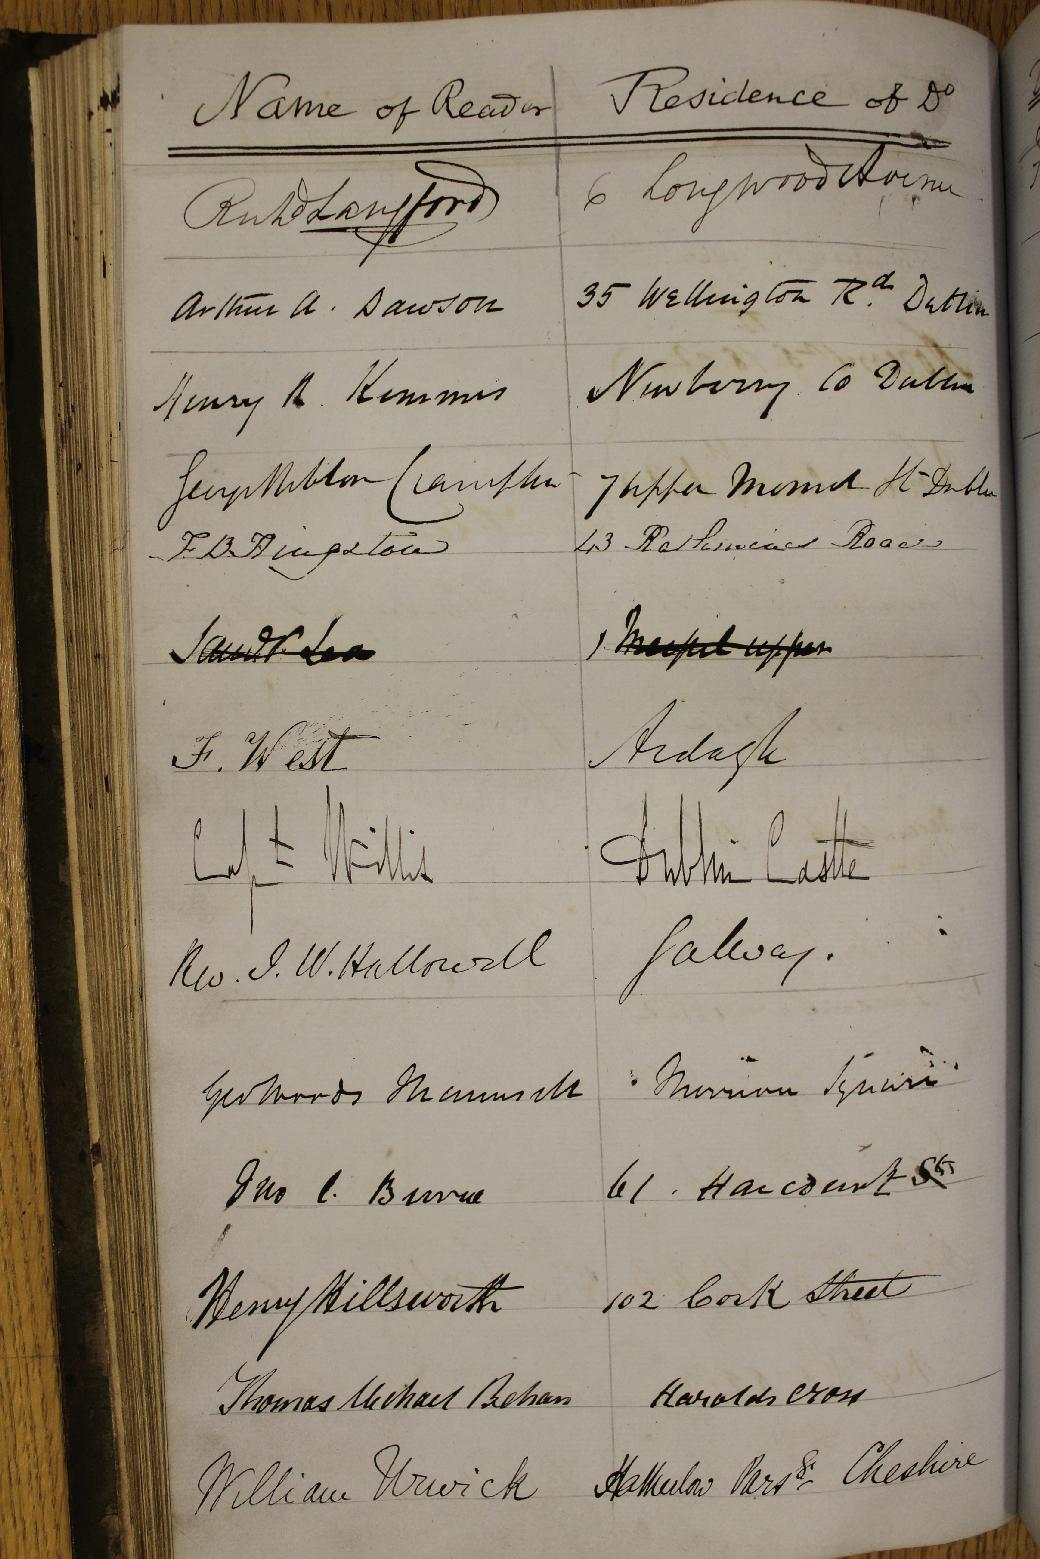 Name of Reader Residence of Do
Richd Langford 6 Longwood Avenue
Arthur A. Dawson 35 Wellington Rd. Dublin
Henry R. Kemmis Newberry Co Dublin
George Ribton Crampton 7 upper Mount St Dublin
F. B. Kingston 43 Rathmines Road
Lea 1 upper
F. West Ardagh
Capt Willis Dublin Castle
Rev. J. W. Hallowell Galway.
Geo Woods Maunsell Merrion Square
Jno C. Burne 61. Harcourt St
Henry Hillsworth 102 Cork Street
Thomas Michael Behan Harolds Cross
William Urwick Hatherlow Cheshire